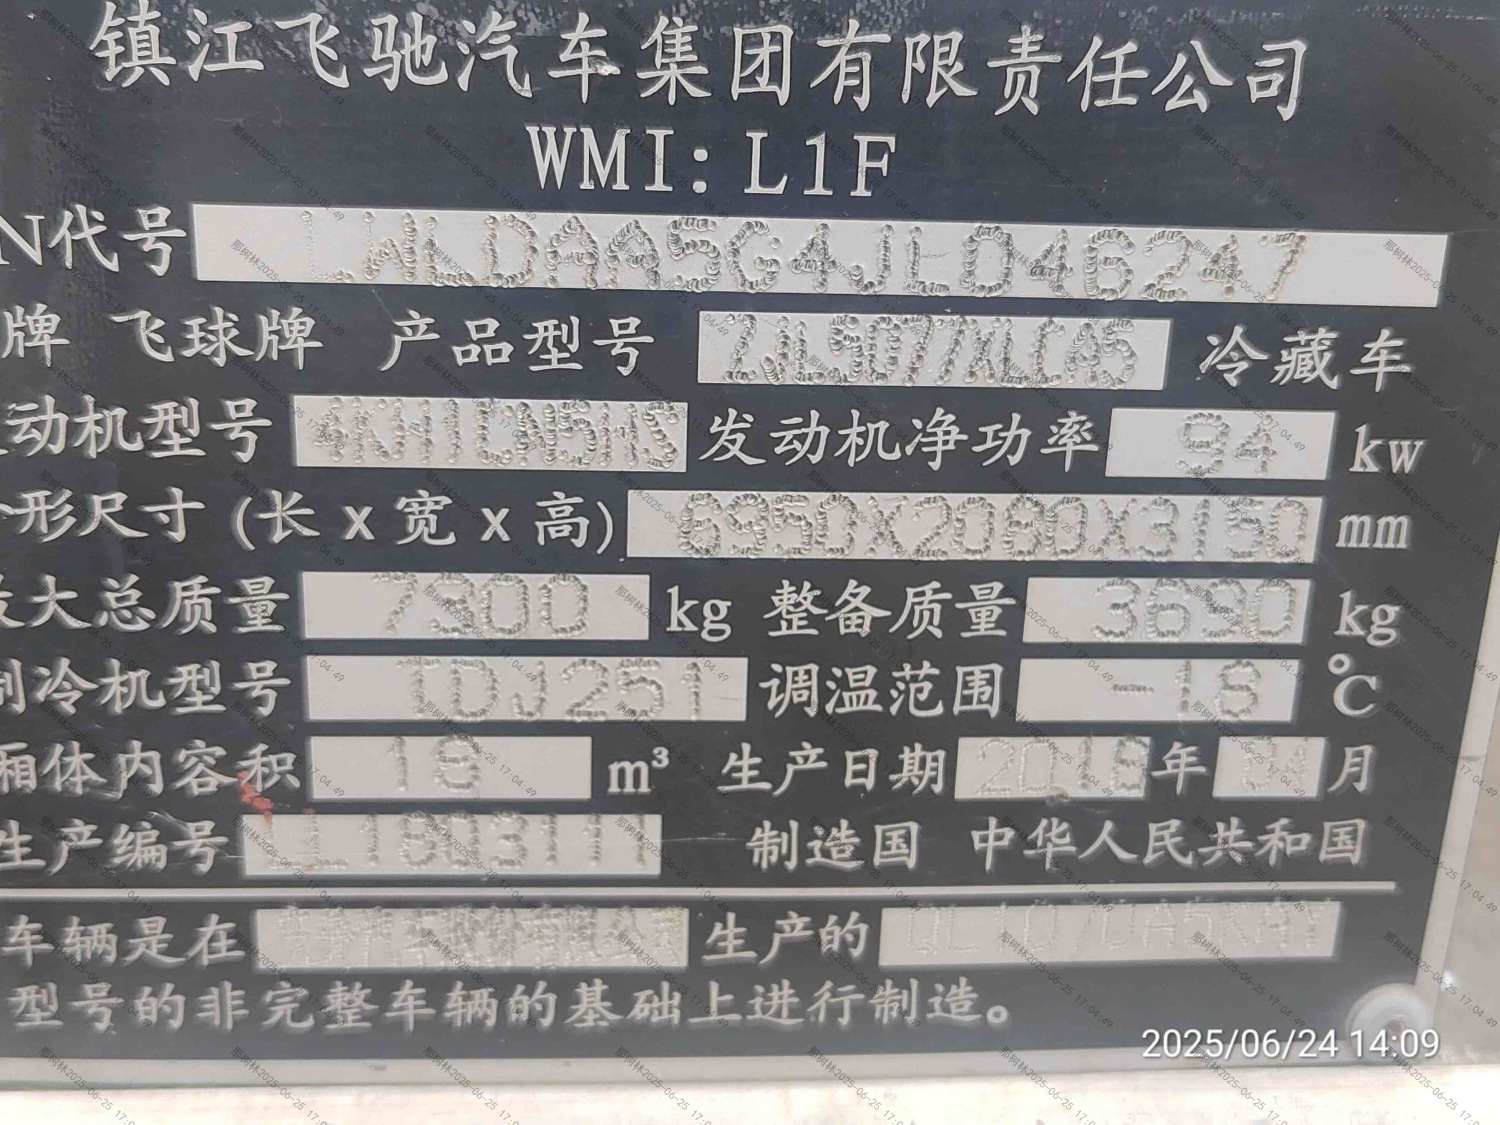 镇江飞驰汽车集团有限责任公司
WMI: L1F
N代号 LWLDAA5G4JL046247
牌 飞球牌 产品型号 ZJL5077XLCA5 冷藏车
动机型号 4KH1CN5HS 发动机净功率 94 kw
形尺寸 (长 x 宽 x 高) 6950X2080X3150 mm
大总质量 7300 kg 整备质量 3690 kg
制冷机型号 TDJ251 调温范围 -18 ℃
厢体内容积 18 m³ 生产日期 2018 年 04 月
生产编号 JL1803111 制造国 中华人民共和国
车辆是在 生产的 QL1070A5KAY
型号的非完整车辆的基础上进行制造。
2025/06/24 14:09
那树林2025-06-25 17:04:49